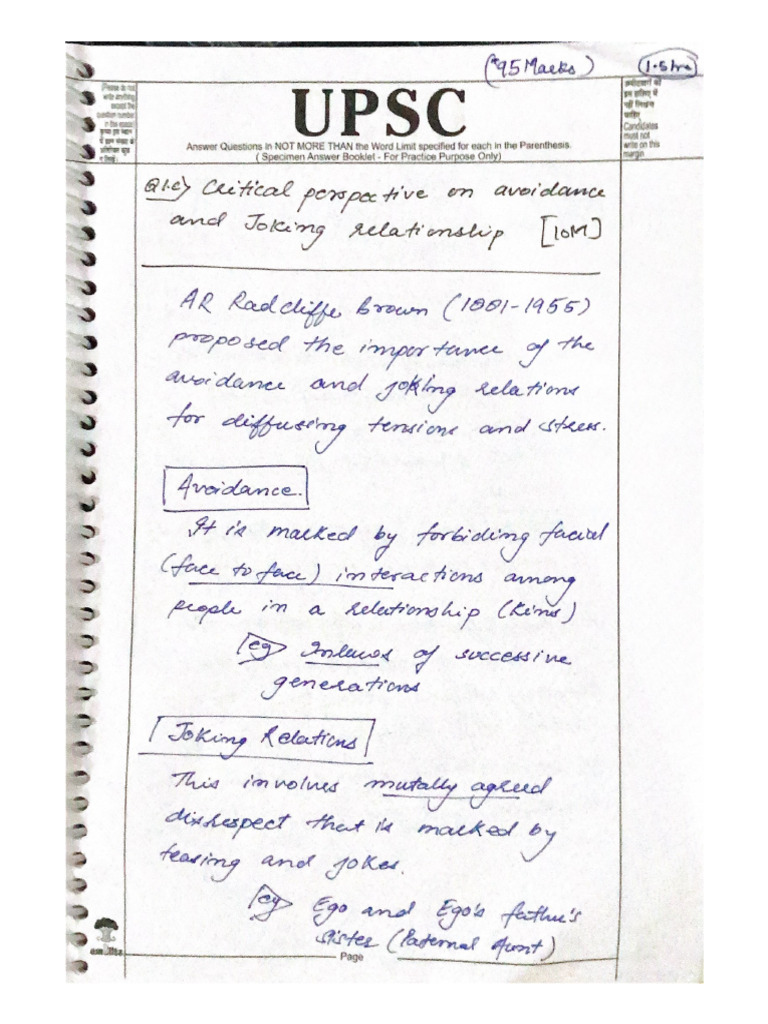 (*95 Marks) (1.5 hrs)
(Please do not
write anything
except the
question number
in this space)
UPSC
Answer Questions in NOT MORE THAN the Word Limit specified for each in the Parenthesis.
( Specimen Answer Booklet - For Practice Purpose Only)
उम्मीदवारों को
इस हाशिए में
नहीं लिखना
चाहिए
Candidates
must not
write on this
margin
Q1.c) Critical perspective on avoidance
and Joking relationship [10M]
AR Radcliffe Brown (1881-1955)
proposed the importance of the
avoidance and joking relations
for diffusing tensions and stress.
Avoidance.
It is marked by forbiding facial
(face to face) interactions among
people in a relationship (Kins)
eg Inlaws of successive
generations
Joking Relations
This involves mutally agreed
disrespect that is marked by
teasing and jokes.
eg Ego and Ego's father's
sister (Paternal Aunt)
Page